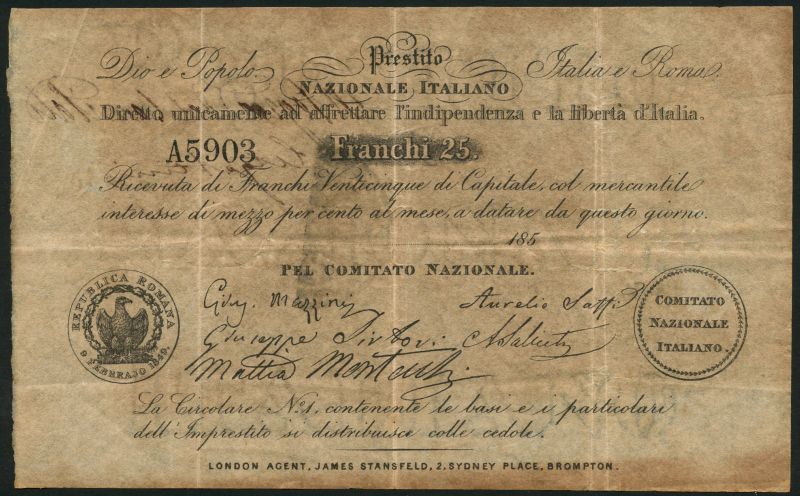 Dio e Popolo.
Prestito
Italia e Roma.
NAZIONALE ITALIANO
Diretto unicamente ad affrettare l'indipendenza e la libertà d'Italia.
A5903
Franchi 25.
Ricevuta di Franchi Venticinque di Capitale, col mercantile
interesse di mezzo per cento al mese, a datare da questo giorno.
185
PEL COMITATO NAZIONALE.
REPUBLICA ROMANA
9 FEBBRAJO 1849.
Gius. Mazzini
Aurelio Saffi
Giuseppe Sirtori
A Saliceti
Mattia Montecchi
COMITATO
NAZIONALE
ITALIANO.
La Circolare No. 1, contenente le basi e i particolari
dell'Imprestito si distribuisce colle cedole.
LONDON AGENT, JAMES STANSFELD, 2, SYDNEY PLACE, BROMPTON.